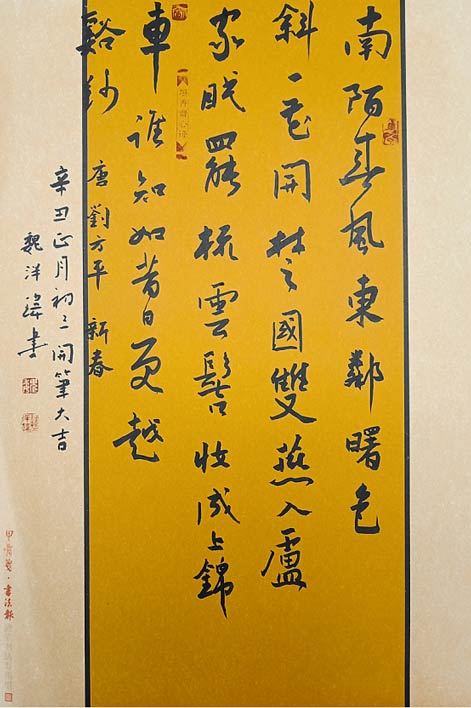 南陌春風東鄰曙色
斜一花開楚國雙燕入盧
家眠罷梳雲髻妝成上錦
車誰知如昔日更越
谿紗 唐劉方平新春
辛丑正月初三開筆大吉
魏洋書
書法報